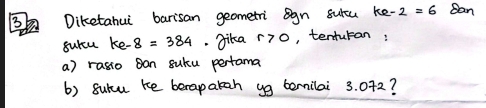 3 Diketahui barisan geometri dgn suku ke-2 = 6 dan
suku ke-8 = 384. Jika r>0, tentukan :
a) rasio dan suku pertama
b) suku ke berapakah yg bernilai 3.072?